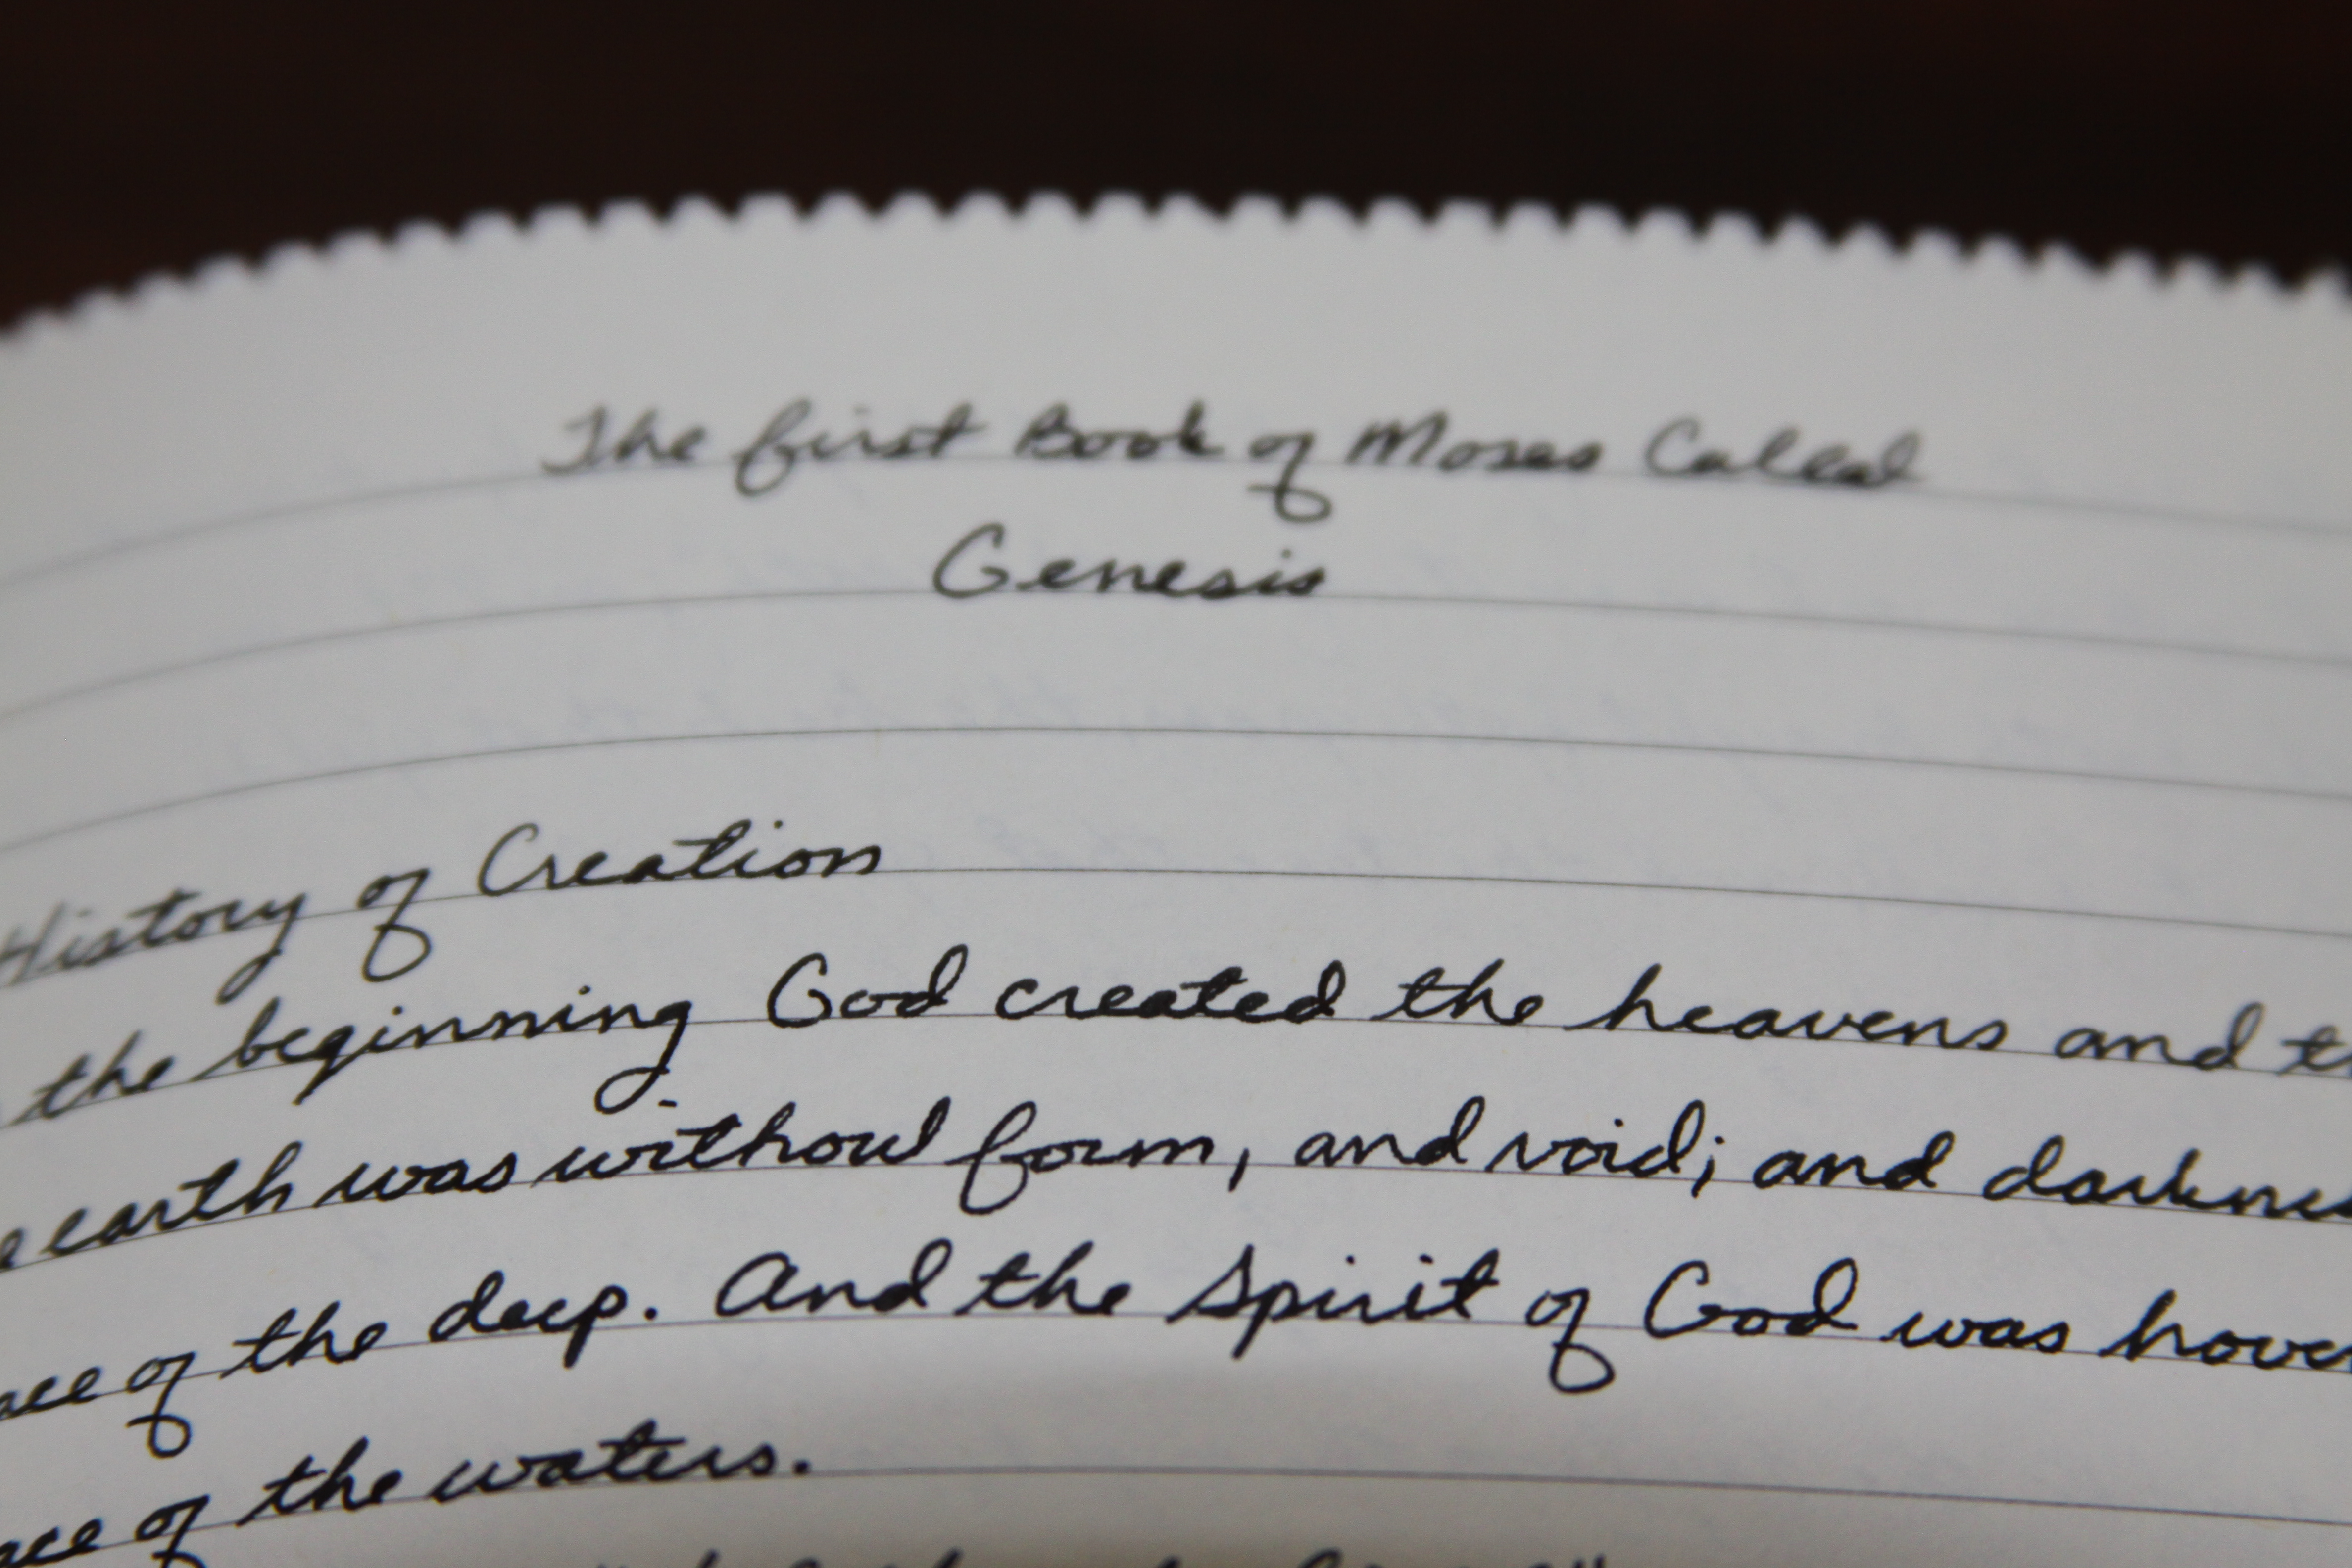 The first Book of Moses Called
Genesis
History of Creation
the beginning God created the heavens and th
e earth was without form, and void; and darkne
ace of the deep. And the Spirit of God was hover
ace of the waters.